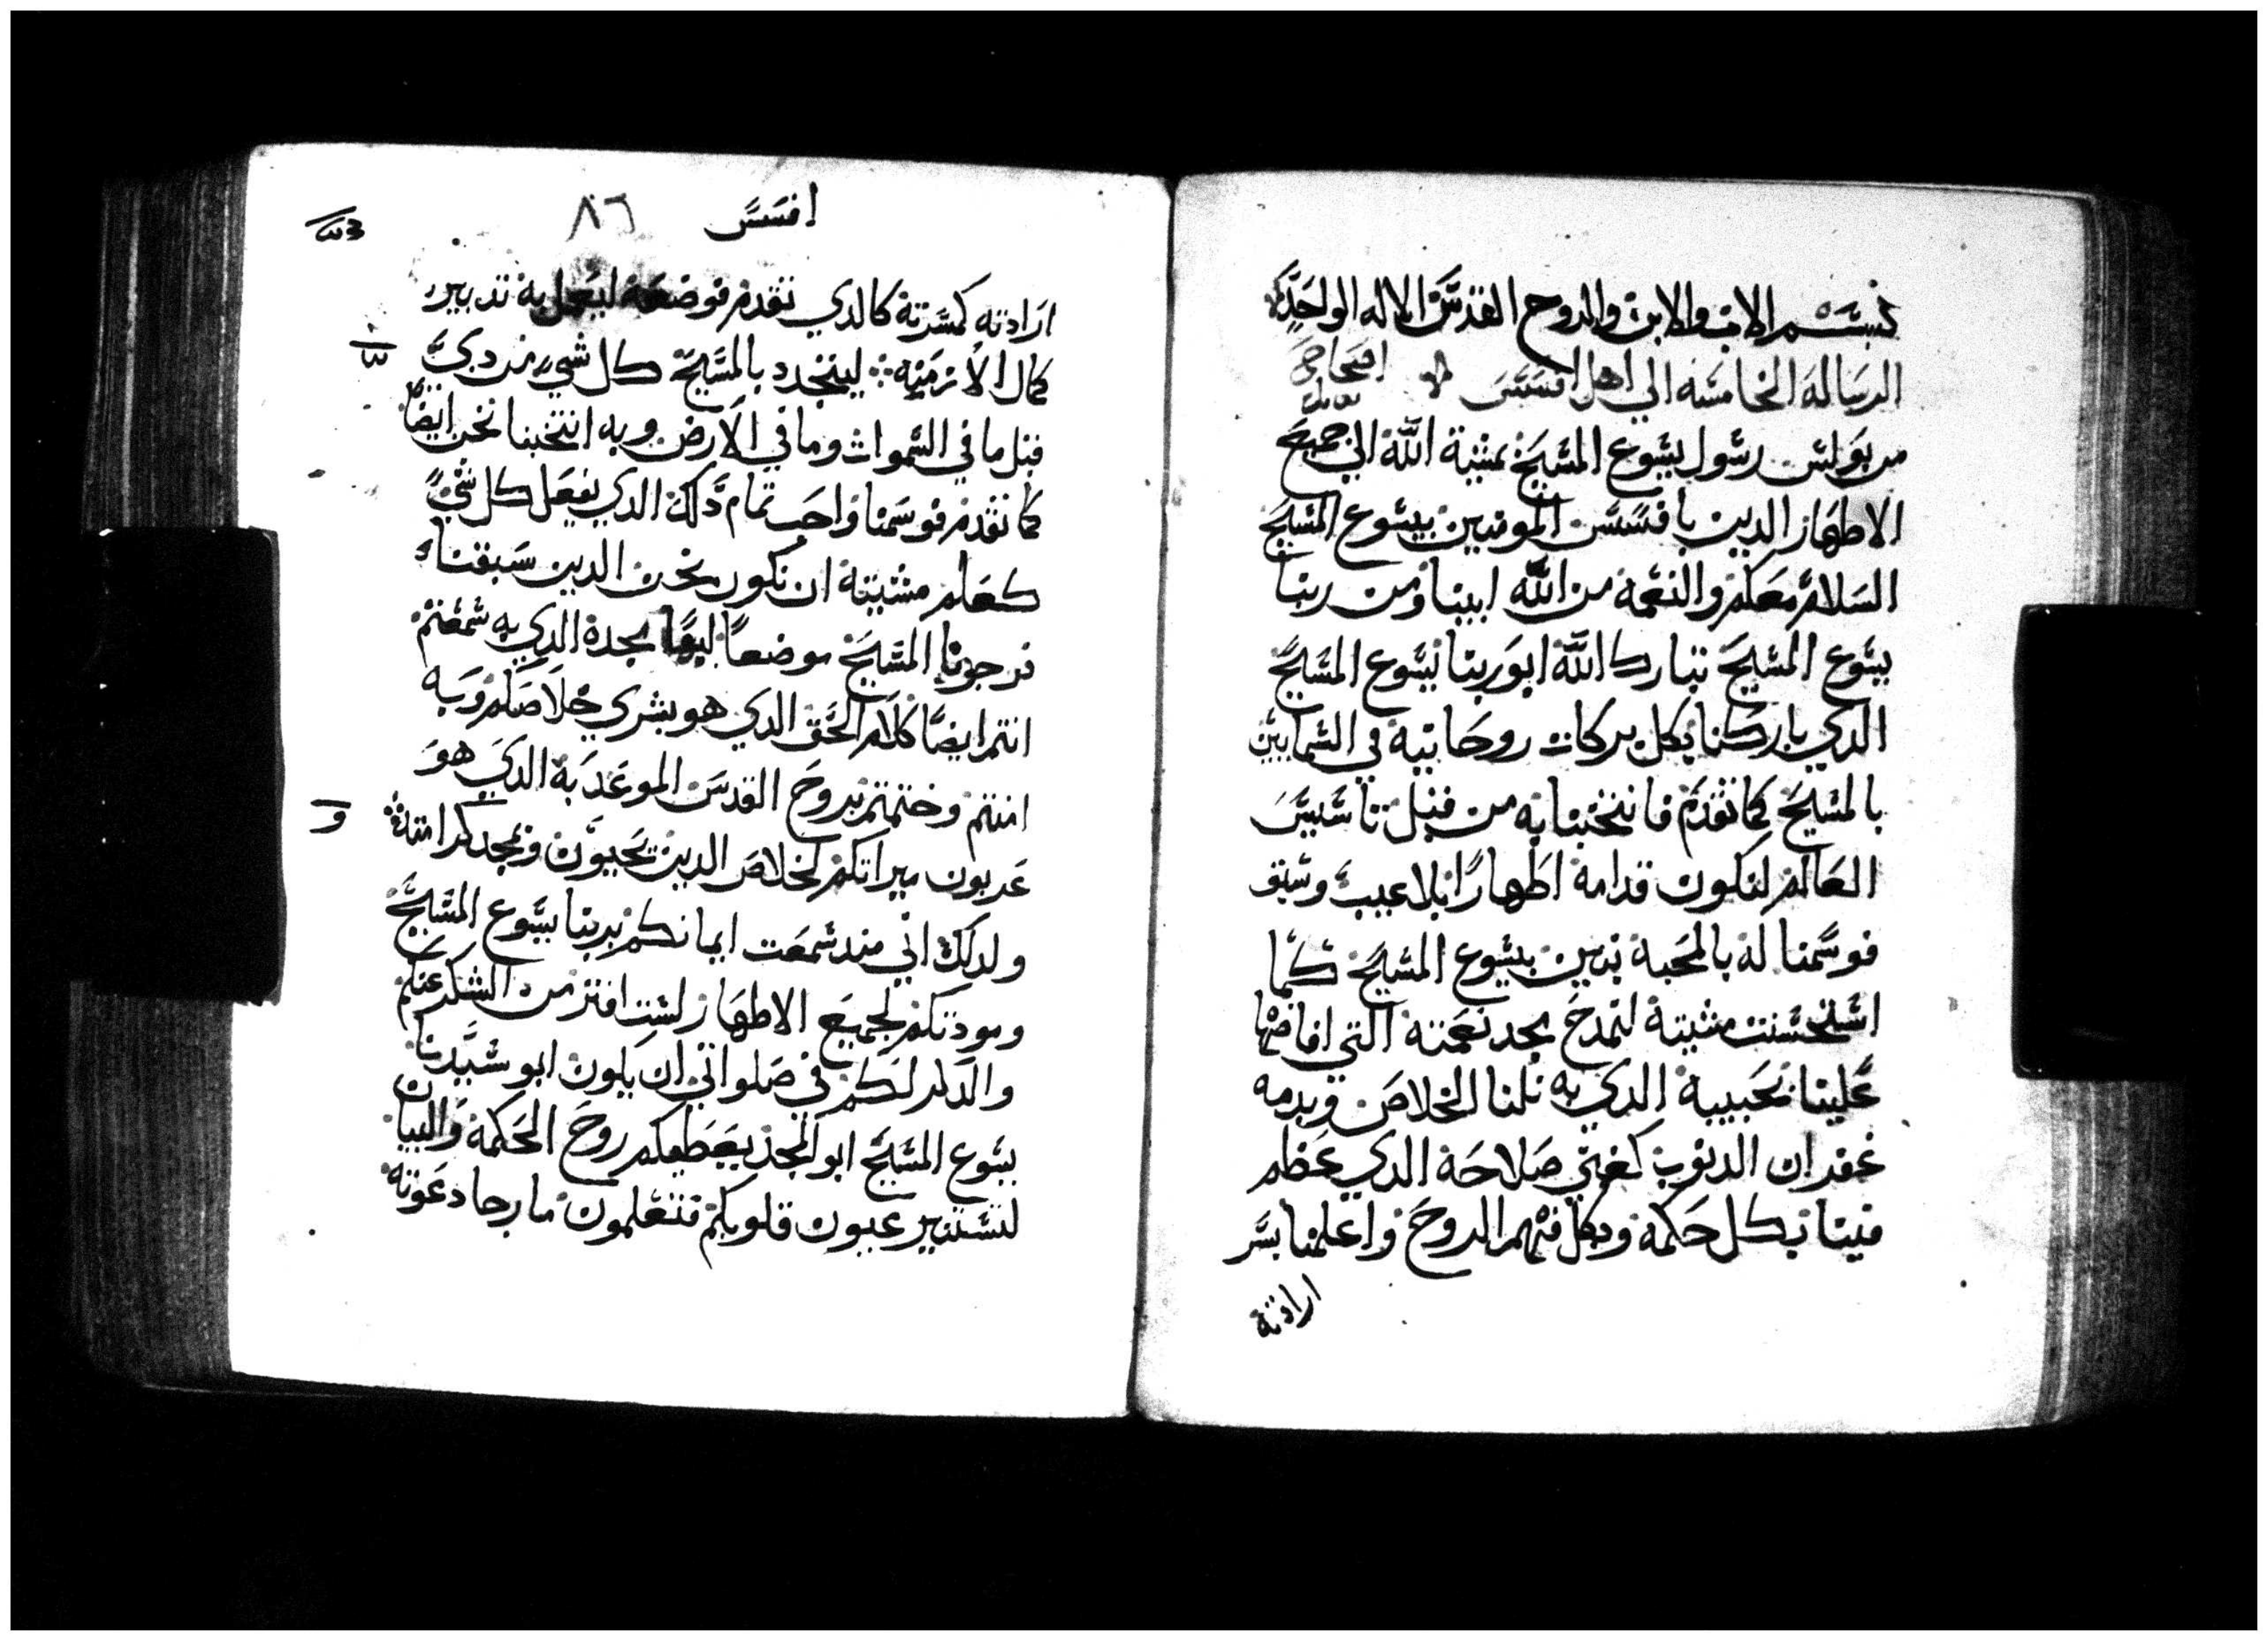 بسم الاب والابن والروح القدس الاله الواحد
الرساله الخامسه الي اهل افسس
من بولس رسول يسوع المسيح بمشية الله الي جميع
الاطهار الدين بافسس المومنين بيسوع المسيح
السلام معكم والنعمه من الله ابينا ومن ربنا
يسوع المسيح تبارك الله ابو ربنا يسوع المسيح
الدي باركنا بكل بركات روحانيه في السمايين
بالمسيح كما تقدم فانتخبنا به من قبل تاسيس
العالم لنكون قدامه اطهارا بلا عيب وسبق
فوسمنا له بالمحبة بنين بيسوع المسيح كما
استحسنت مشيته لتمدح مجد نعمته التي افاضها
علينا بحبيبه الدي به نلنا الخلاص وبدمه
غفران الدنوب كغني صلاحه الدي عظم
فينا بكل حكمه وبكل فهم الروح واعلمنا بسر
ارادته
افسس ٨٦
ارادته كمسرته كالدي تقدم فوضعه ليعمل به تدبير
كمال الازمنه ليتجدد بالمسيح كل شي من دي
قبل ما في السموات وما في الارض وبه انتخبنا نحن ايضا
كما تقدم فوسمنا واحب تمام دلك الدي يفعل كل شي
كعلم مشيته ان نكون نحن الدين سبقنا
فرجونا المسيح موضعا لبها مجده الدي به سمعتم
انتم ايضا كلام الحق الدي هو بشري خلاصكم وبه
امنتم وختمتم بروح القدس الموعد به الدي هو
عربون ميراتكم لخلاص الدين يحيون ومجد كرامته
ولدلك اني مند سمعت ايمانكم بربنا يسوع المسيح
ومودتكم لجميع الاطهار لست افتر من الشكر عنكم
والدكر لكم في صلواتي ان يكون ابو سيدنا
يسوع المسيح ابو المجد يعطيكم روح الحكمة والبيان
لتستنير عيون قلوبكم فتعلمون ما رجا دعوته